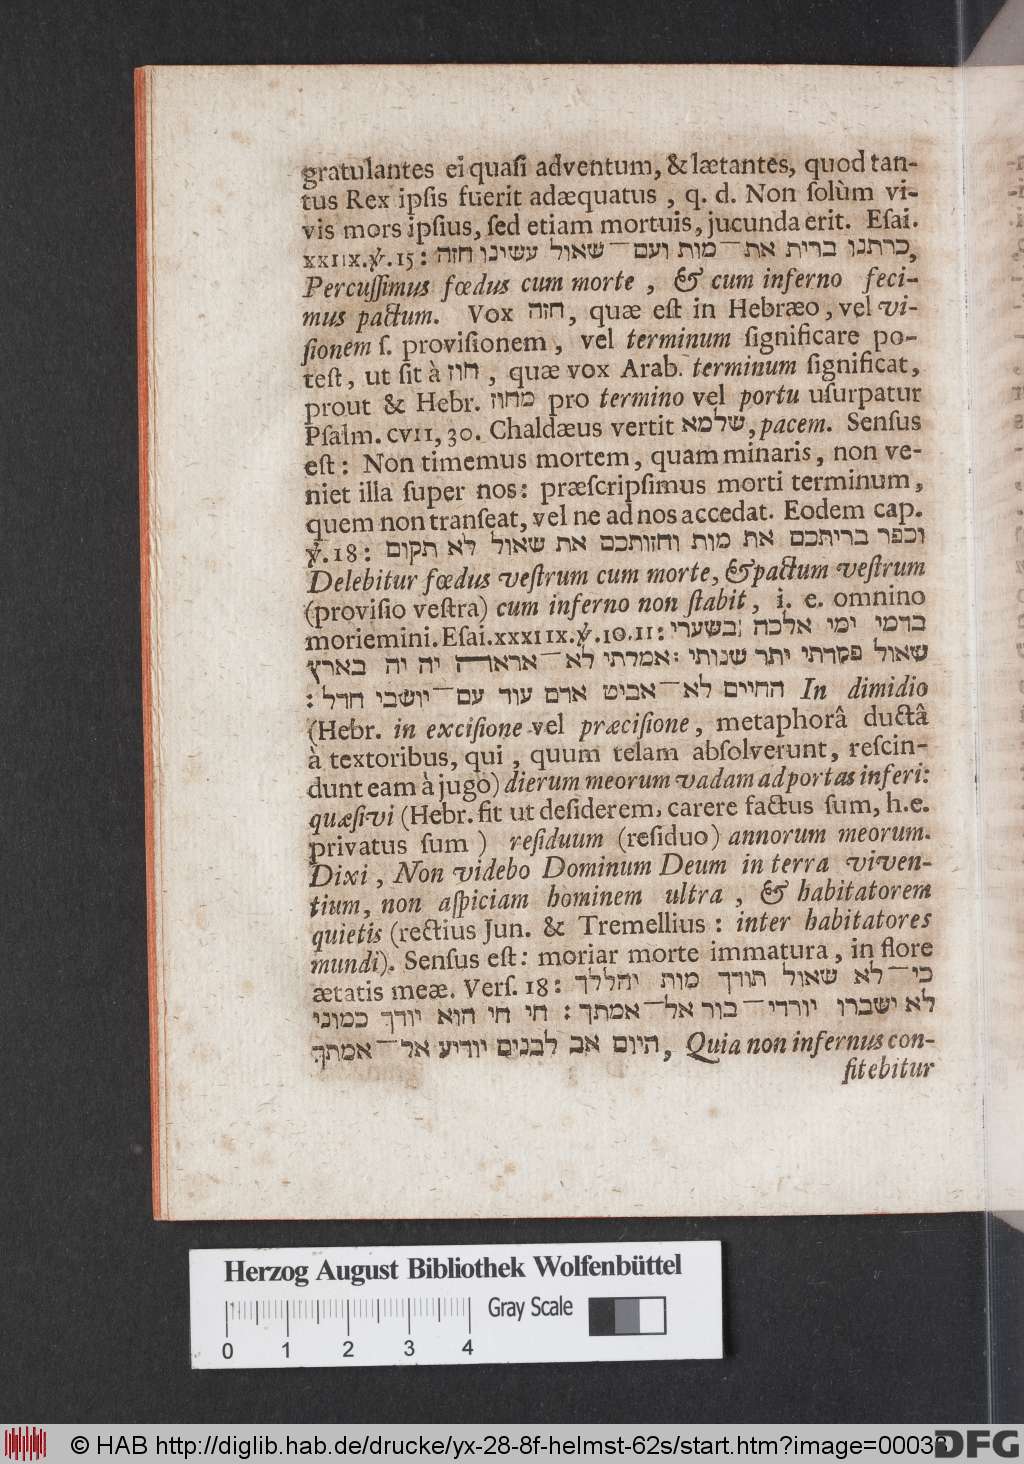 gratulantes ei quaſi adventum, & lætantes, quod tan-
tus Rex ipſis fuerit adæquatus , q. d. Non ſolùm vi-
vis mors ipſius, ſed etiam mortuis, jucunda erit. Eſai.
XXIIX.℣.15: כרתנו ברית את־מות ועם־שאול עשינו חזה,
Percuſſimus fœdus cum morte , & cum inferno feci-
mus pactum. Vox חזה, quæ eſt in Hebræo, vel vi-
ſionem ſ. proviſionem, vel terminum ſignificare po-
teſt, ut ſit à חוז , quæ vox Arab. terminum ſignificat,
prout & Hebr. מחוז pro termino vel portu uſurpatur
Pſalm. CVII, 30. Chaldæus vertit שלמא, pacem. Senſus
eſt: Non timemus mortem, quam minaris, non ve-
niet illa ſuper nos: præſcripſimus morti terminum,
quem non tranſeat, vel ne ad nos accedat. Eodem cap.
℣.18: וכפר בריתכם את מות וחזותכם את שאול לא תקום
Delebitur fœdus veſtrum cum morte, & pactum veſtrum
(proviſio veſtra) cum inferno non ſtabit, i. e. omnino
moriemini. Eſai. XXXIIX.℣.10.11: בדמי ימי אלכה בשערי
שאול פקדתי יתר שנותי: אמרתי לא־אראה יה יה בארץ
החיים לא־אביט אדם עוד עם־יושבי חדל: In dimidio
(Hebr. in exciſione vel præciſione, metaphorâ ductâ
à textoribus, qui , quum telam abſolverunt, reſcin-
dunt eam à jugo) dierum meorum vadam ad portas inferi:
quæſivi (Hebr. fit ut deſiderem, carere factus ſum, h.e.
privatus ſum ) reſiduum (reſiduo) annorum meorum.
Dixi , Non videbo Dominum Deum in terra viven-
tium, non aſpiciam hominem ultra , & habitatorem
quietis (rectius Jun. & Tremellius : inter habitatores
mundi). Senſus eſt: moriar morte immatura, in flore
ætatis meæ. Verſ. 18: כי־לא שאול תודך מות יהללך
לא ישברו יורדי־בור אל־אמתך: חי חי הוא יודך כמוני
היום אב לבנים יודיע אל־אמתך, Quia non infernus con-
fitebitur
Herzog August Bibliothek Wolfenbüttel
Gray Scale
0 1 2 3 4
© HAB http://diglib.hab.de/drucke/yx-28-8f-helmst-62s/start.htm?image=00038
DFG